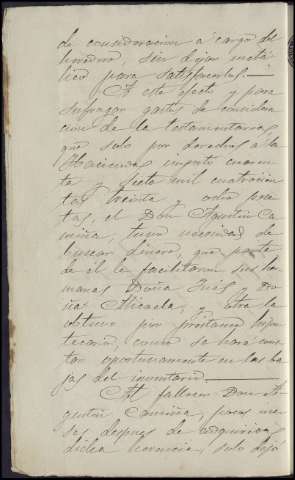 de consideracion á cargo del
heredero, sin dejar metá-
lico para satisfacerlas.
A este efecto y para
sufragar gastos de considera
cion de la testamentaria
que solo por derechos á la
Hacienda importó cuaren
ta y siete mil cuatrocien
tas treinta y ocho pese
tas, el Don Agustin Ca
miña, tuvo necesidad de
buscar dinero, que parte
de él le facilitaron sus her
manas Doña Inés y Do
ña Micaela, y otra la
obtuvo por préstamo hipo
tecario, como se hará cons
tar oportunamente en las ba
jas del inventario.
Al fallecer Don A
gustin Camiña, pocos me
ses despues de adquirida
dicha herencia, solo dejó